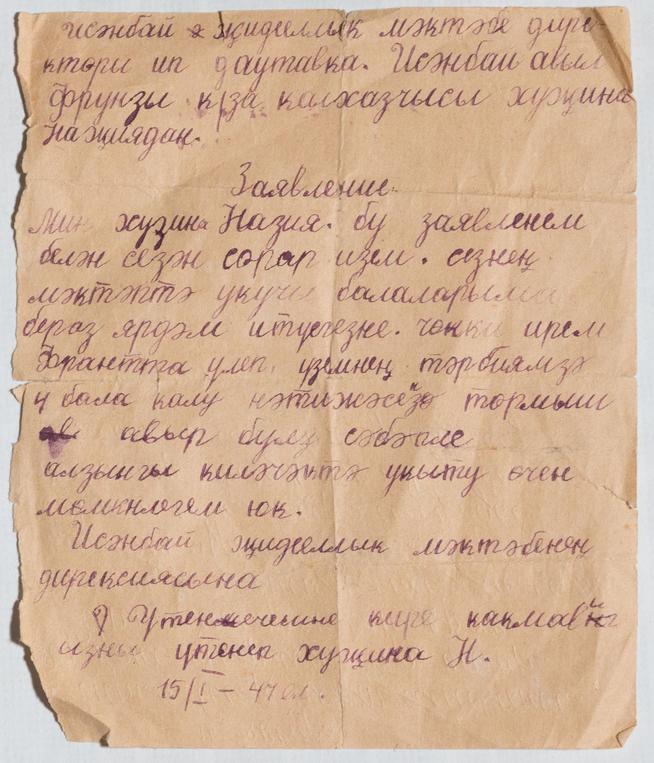 Исәнбай җидееллык мәктәбе дире-
ктори ип даутавка. Исәнбаи авыл
Фрунзы к/за калхазчысы хуҗина
Наҗиядан.
Заявление.
Мин хузина Назия. бу заявленем
белән сезән сорар идем. сезнең
мәктәптә укучы балаларыма
бераз ярдәм итүегезне. чөнки ирем
Франтта улеп, үземнең тәрбиямзә
4 бала калу нәтиҗәсезә тормыш
авыр булу сәбәпле
алзынгы киләчәктә укыту өчен
мөмкнлегем юк.
Исәнбай җидееллык мәктәбенең
дирексиясына
Үтенечемне кире какмавың
изне үтенеп хуҗина Н.
15/I – 47 ел.